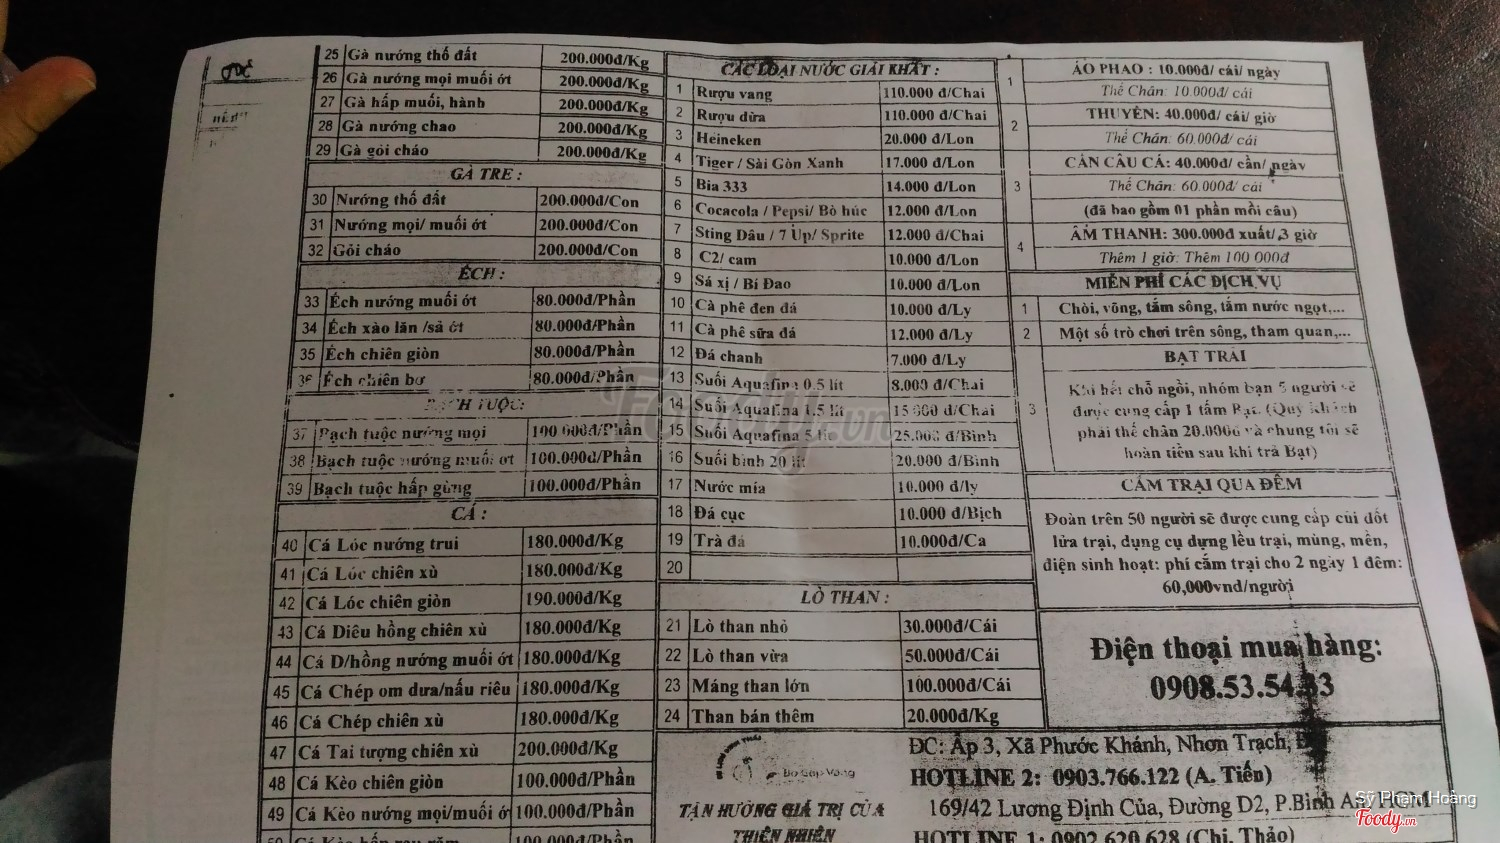 25 Gà nướng thố đất 200.000đ/Kg
26 Gà nướng mọi muối ớt 200.000đ/Kg
27 Gà hấp muối, hành 200.000đ/Kg
28 Gà nướng chao 200.000đ/Kg
29 Gà gỏi cháo 200.000đ/Kg
GÀ TRE :
30 Nướng thố đất 200.000đ/Con
31 Nướng mọi/ muối ớt 200.000đ/Con
32 Gỏi cháo 200.000đ/Con
ẾCH :
33 Ếch nướng muối ớt 80.000đ/Phần
34 Ếch xào lăn /sả ớt 80.000đ/Phần
35 Ếch chiên giòn 80.000đ/Phần
36 Ếch chiên bơ 80.000đ/Phần
BẠCH TUỘC:
37 Bạch tuộc nướng mọi 100.000đ/Phần
38 Bạch tuộc nướng muối ớt 100.000đ/Phần
39 Bạch tuộc hấp gừng 100.000đ/Phần
CÁ :
40 Cá Lóc nướng trui 180.000đ/Kg
41 Cá Lóc chiên xù 180.000đ/Kg
42 Cá Lóc chiên giòn 190.000đ/Kg
43 Cá Diêu hồng chiên xù 180.000đ/Kg
44 Cá D/hồng nướng muối ớt 180.000đ/Kg
45 Cá Chép om dưa/nấu riêu 180.000đ/Kg
46 Cá Chép chiên xù 180.000đ/Kg
47 Cá Tai tượng chiên xù 200.000đ/Kg
48 Cá Kèo chiên giòn 100.000đ/Phần
49 Cá Kèo nướng mọi/muối ớ 100.000đ/Phần
CÁC LOẠI NƯỚC GIẢI KHÁT :
1 Rượu vang 110.000 đ/Chai
2 Rượu dừa 110.000 đ/Chai
3 Heineken 20.000 đ/Lon
4 Tiger / Sài Gòn Xanh 17.000 đ/Lon
5 Bia 333 14.000 đ/Lon
6 Cocacola / Pepsi/ Bò húc 12.000 đ/Lon
7 Sting Dâu / 7 Up/ Sprite 12.000 đ/Chai
8 C2/ cam 10.000 đ/Lon
9 Sá xị / Bí Đao 10.000 đ/Lon
10 Cà phê đen đá 10.000 đ/Ly
11 Cà phê sữa đá 12.000 đ/Ly
12 Đá chanh 7.000 đ/Ly
13 Suối Aquafina 0.5 lít 8.000 đ/Chai
14 Suối Aquafina 1.5 lít 15.000 đ/Chai
15 Suối Aquafina 5 lít 25.000 đ/Bình
16 Suối bình 20 lít 20.000 đ/Bình
17 Nước mía 10.000 đ/ly
18 Đá cục 10.000 đ/Bịch
19 Trà đá 10.000đ/Ca
20
LÒ THAN :
21 Lò than nhỏ 30.000đ/Cái
22 Lò than vừa 50.000đ/Cái
23 Máng than lớn 100.000đ/Cái
24 Than bán thêm 20.000đ/Kg
Bò Cạp Vàng
TẬN HƯỞNG GIÁ TRỊ CỦA
THIÊN NHIÊN
1 ÁO PHAO : 10.000đ/ cái/ ngày
Thế Chân: 10.000đ/ cái
2 THUYỀN: 40.000đ/ cái/ giờ
Thế Chân: 60.000đ/ cái
3 CẦN CÂU CÁ: 40.000đ/ cần/ ngày
Thế Chân: 60.000đ/ cái
(đã bao gồm 01 phần mồi câu)
4 ÂM THANH: 300.000đ xuất/ 3 giờ
Thêm 1 giờ: Thêm 100 000đ
MIỄN PHÍ CÁC DỊCH VỤ
1 Chòi, võng, tắm sông, tắm nước ngọt,...
2 Một số trò chơi trên sông, tham quan,...
BẠT TRẢI
3 Khi hết chỗ ngồi, nhóm bạn 5 người sẽ
được cung cấp 1 tấm Bạt. (Quý khách
phải thế chân 20.000đ và chúng tôi sẽ
hoàn tiền sau khi trả Bạt)
CẮM TRẠI QUA ĐÊM
Đoàn trên 50 người sẽ được cung cấp củi đốt
lửa trại, dụng cụ dựng lều trại, mùng, mền,
điện sinh hoạt: phí cắm trại cho 2 ngày 1 đêm:
60,000vnđ/người
Điện thoại mua hàng:
0908.53.54.33
ĐC: Ấp 3, Xã Phước Khánh, Nhơn Trạch,
HOTLINE 2: 0903.766.122 (A. Tiến)
169/42 Lương Định Của, Đường D2, P.Bình An, HCM
HOTLINE 1: 0902.620.628 (Chị. Thảo)
Foody.vn
Sỹ Phạm Hoàng
Foody.vn